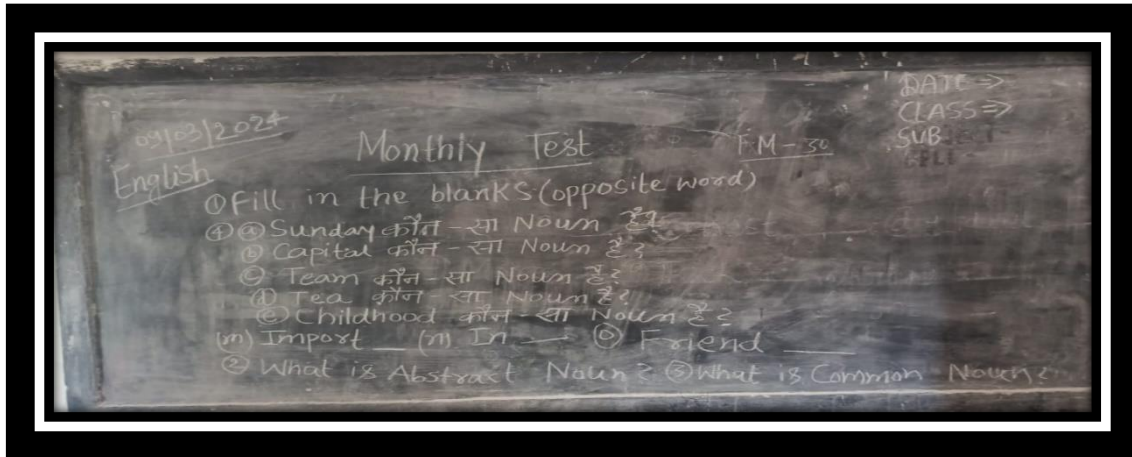 DATE ⇒
CLASS ⇒
SUB
09/03/2024
English
Monthly Test
F.M - 50
① Fill in the blanks (opposite word)
④ ⓐ Sunday कौन - सा Noun है?
ⓑ Capital कौन - सा Noun है?
ⓒ Team कौन - सा Noun है?
ⓓ Tea कौन - सा Noun है?
ⓔ Childhood कौन - सा Noun है?
(m) Import __ (n) In __ ⓞ Friend __
② What is Abstract Noun? ③ What is Common Noun?